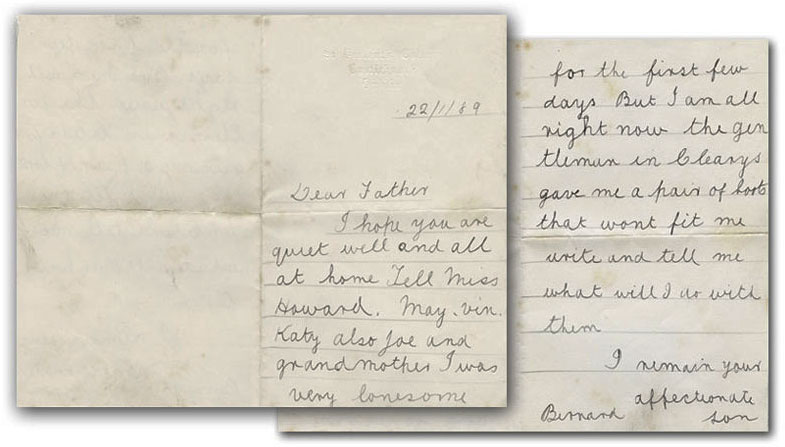 22/1/89
Dear Father
I hope you are
quiet well and all
at home Tell Miss
Howard. May. vin.
Katy also Joe and
grandmother I was
very lonesome
for the first few
days But I am all
right now the gen
tleman in Clearys
gave me a pair of boots
that wont fit me
write and tell me
what will I do with
them
I remain your
affectionate
Bernard son